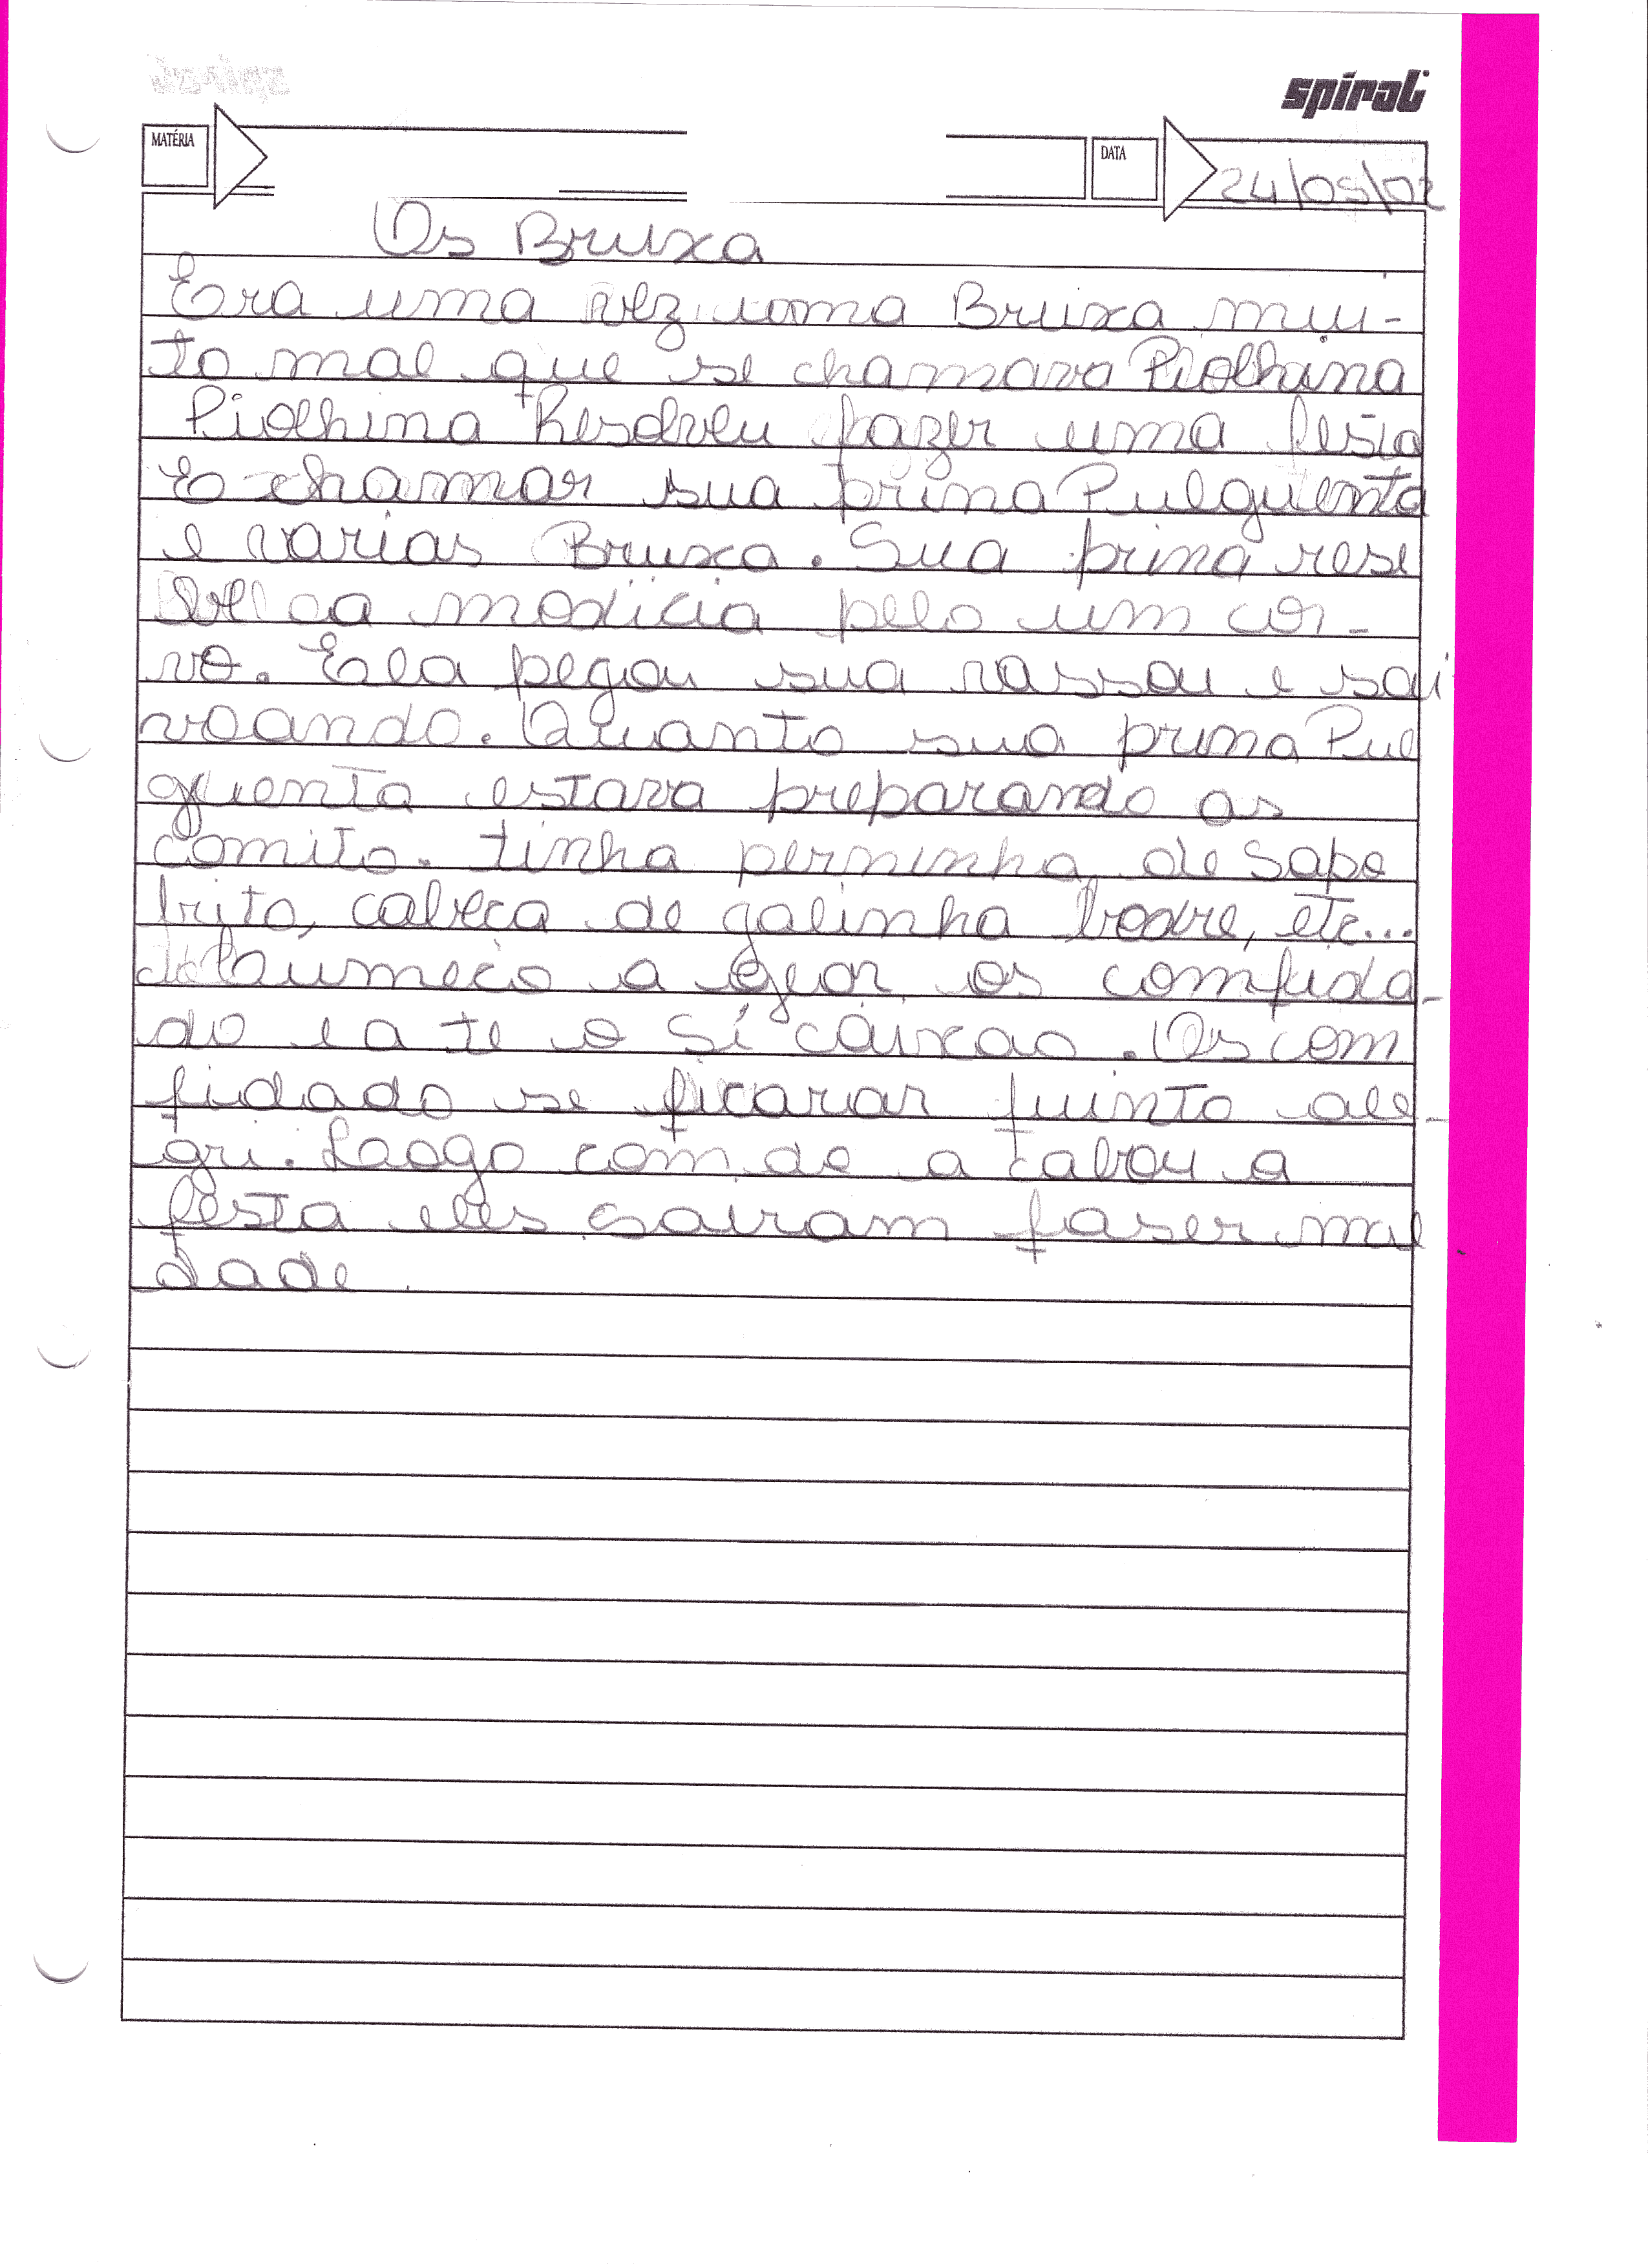 spiral
MATÉRIA
DATA
24/05/02
Os Bruxa
Era uma vez uma Bruxa mui-
to mal que se chamava Piolhina
Piolhina Resolveu fazer uma festa
E chamar sua prima Pulguenta
e varias Bruxa. Sua prima rese
vel a modicia pelo um cor-
vo. Ela pegou sua vassou e sai
voando. Quanto sua prima Pul
guenta estava preparando as
comito. tinha perninha de Sapo
frito, cabeca de galinha podre, etc...
Cumeco a gear os comfida-
do e a te o Sí caixao. Os com
fidado se ficarar fuinto ale-
gri. Laogo com do a cabou a
festa eles sairam faser mal
dade.